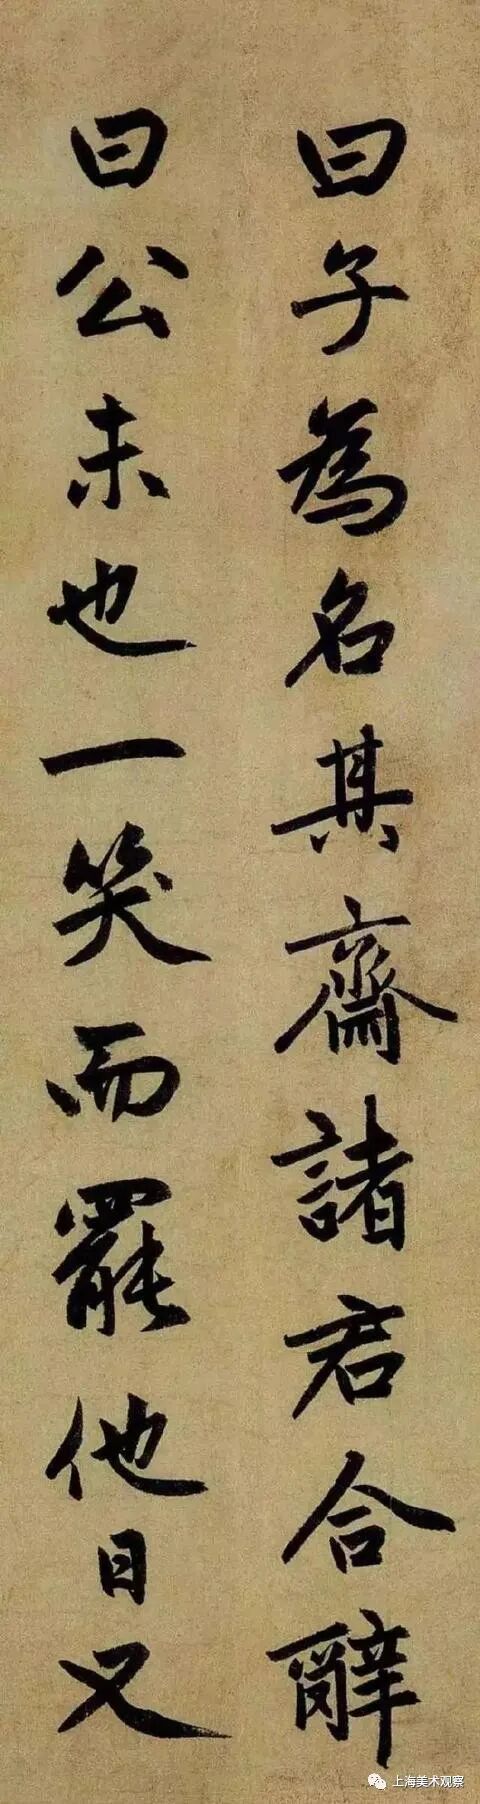 曰子為名其齋諸君合辭
曰公未也一笑而罷他日又
上海美术观察